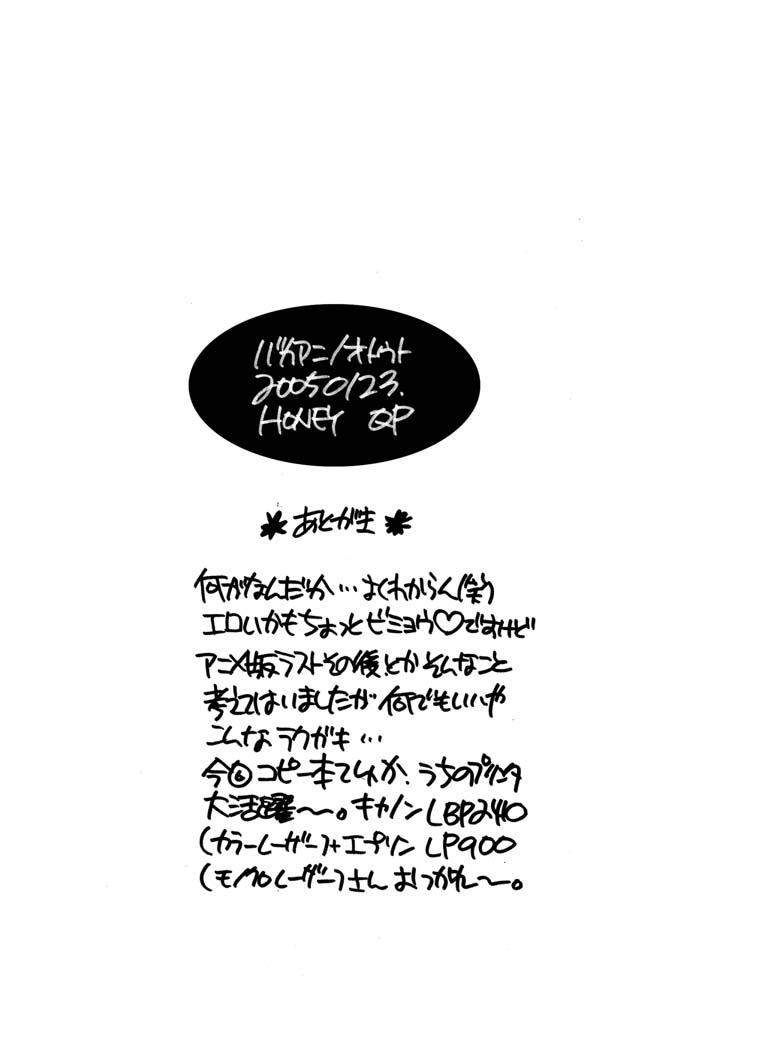 バカアニノオトウト
20050123.
HONEY QP
＊あとがき＊
何がなんだか…よくわからん(笑)
エロいかもちょっとビミョウ♡ですけど
アニメ版ラストその後とかそんなこと
考えてはいましたが何でもいいや
こんなラクガキ…
今コピー本てゆーか、うちのプリンタ
大活躍〜。キヤノンLBP2410
(カラーレーザー)+エプソンLP900
(モノクロレーザー)さんおつかれ〜。